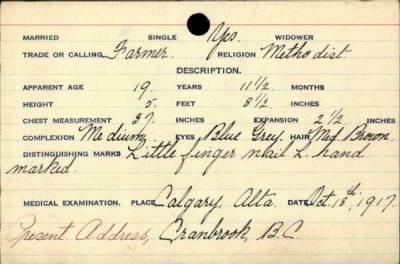 MARRIED SINGLE Yes. WIDOWER
TRADE OR CALLING Farmer. RELIGION Methodist.
DESCRIPTION.
APPARENT AGE 19 YEARS 11 1/2 MONTHS
HEIGHT 5 FEET 8 1/2 INCHES
CHEST MEASUREMENT 37 INCHES EXPANSION 2 1/2 INCHES
COMPLEXION Medium, EYES Blue Grey. HAIR Med. Brown
DISTINGUISHING MARKS Little finger nail L. hand
marked.
MEDICAL EXAMINATION. PLACE Calgary, Alta. DATE Oct. 18th, 1917.
Present Address, Cranbrook, B.C.